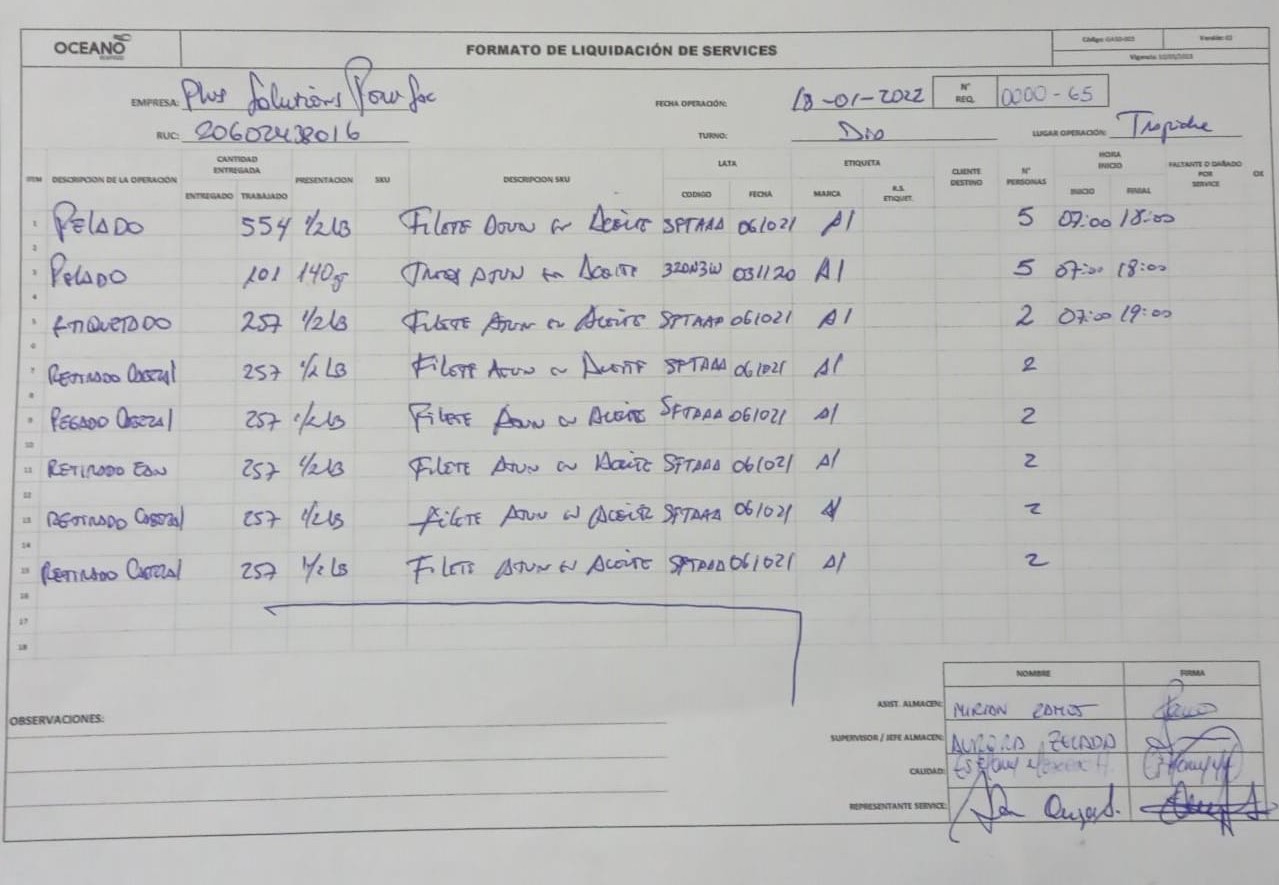 OCEANO
FORMATO DE LIQUIDACIÓN DE SERVICES
Código: GASD-003 Versión: 02
Vigencia:
EMPRESA: Plus Solutions Peru Sac FECHA OPERACIÓN: 18-01-2022 N° REQ. 0000-65
RUC: 20602438016 TURNO: Dia LUGAR OPERACIÓN: Trapiche
ITEM DESCRIPCION DE LA OPERACIÓN CANTIDAD ENTREGADA ENTREGADO TRABAJADO PRESENTACION SKU DESCRIPCION SKU LATA CODIGO FECHA ETIQUETA MARCA R.S. ETIQUET. CLIENTE DESTINO N° PERSONAS HORA INICIO INICIO FINAL FALTANTE O DAÑADO POR SERVICE
1 PELADO 554 1/2 LB FILETE ATUN EN ACEITE SPTAAA 061021 A1 5 07:00 18:00
2
3 PELADO 101 140g ATUN EN ACEITE 320N3W 031120 A1 5 07:00 18:00
4
5 ETIQUETADO 257 1/2 LB FILETE ATUN EN ACEITE SPTAAA 061021 A1 2 07:00 19:00
6
7 RETIRADO CABEZAL 257 1/2 LB FILETE ATUN EN ACEITE SPTAAA 061021 A1 2
8
9 PEGADO CABEZAL 257 1/2 LB FILETE ATUN EN ACEITE SPTAAA 061021 A1 2
10
11 RETIRADO EAN 257 1/2 LB FILETE ATUN EN ACEITE SPTAAA 061021 A1 2
12
13 RETIRADO CABEZAL 257 1/2 LB FILETE ATUN EN ACEITE SPTAAA 061021 A1 2
14
15 RETIRADO CABEZAL 257 1/2 LB FILETE ATUN EN ACEITE SPTAAA 061021 A1 2
16
17
18
NOMBRE FIRMA
OBSERVACIONES:
ASIST. ALMACEN: MIRIAN RAMOS
SUPERVISOR / JEFE ALMACEN: AURORA ZELADA
CALIDAD:
REPRESENTANTE SERVICE: